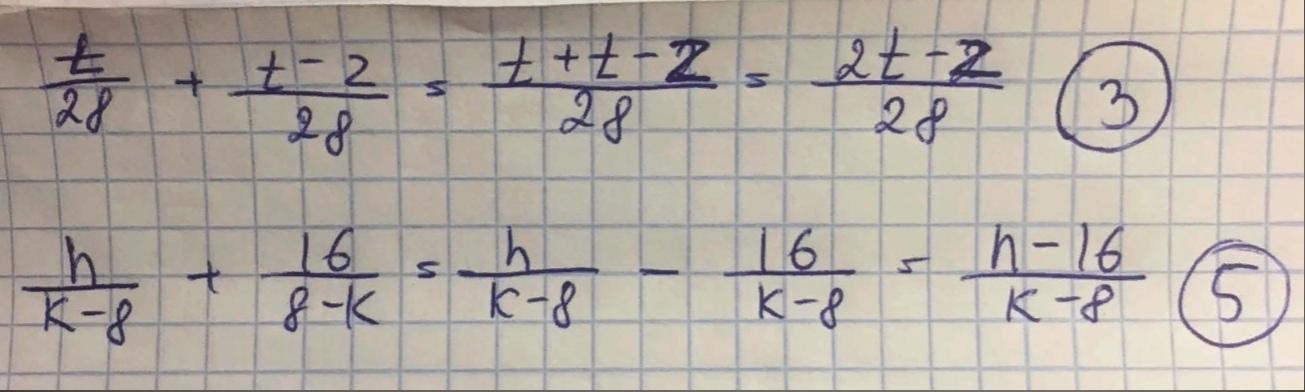 t/28 + t-2/28 = t+t-2/28 = 2t-2/28 3
n/k-8 + 16/8-k = n/k-8 - 16/k-8 = n-16/k-8 5